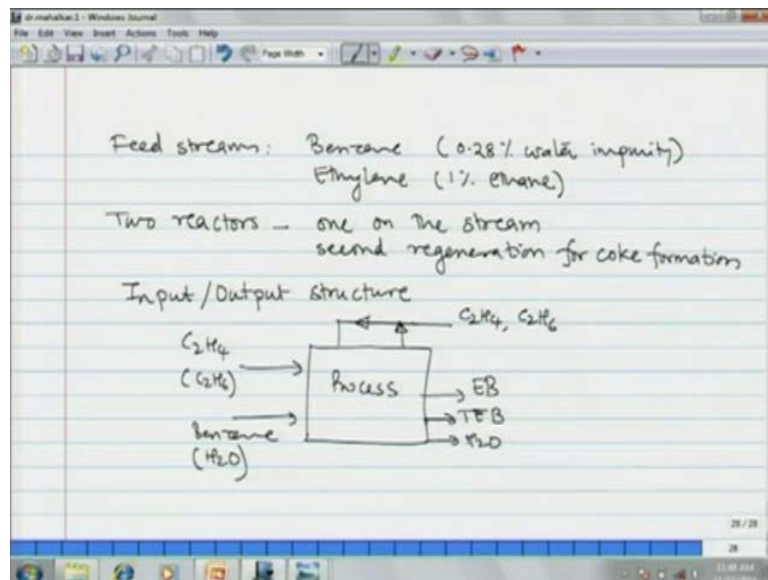 dr.mahalkar.1 - Windows Journal
File Edit View Insert Actions Tools Help
Page Width
Feed streams: Benzene (0.28% water impurity)
Ethylene (1% ethane)
Two reactors - one on the stream
second regeneration for coke formation
Input/Output structure
C2H4, C2H6
C2H4
(C2H6)
Process
EB
TEB
H2O
Benzene
(H2O)
28 / 28
28
11:48 AM